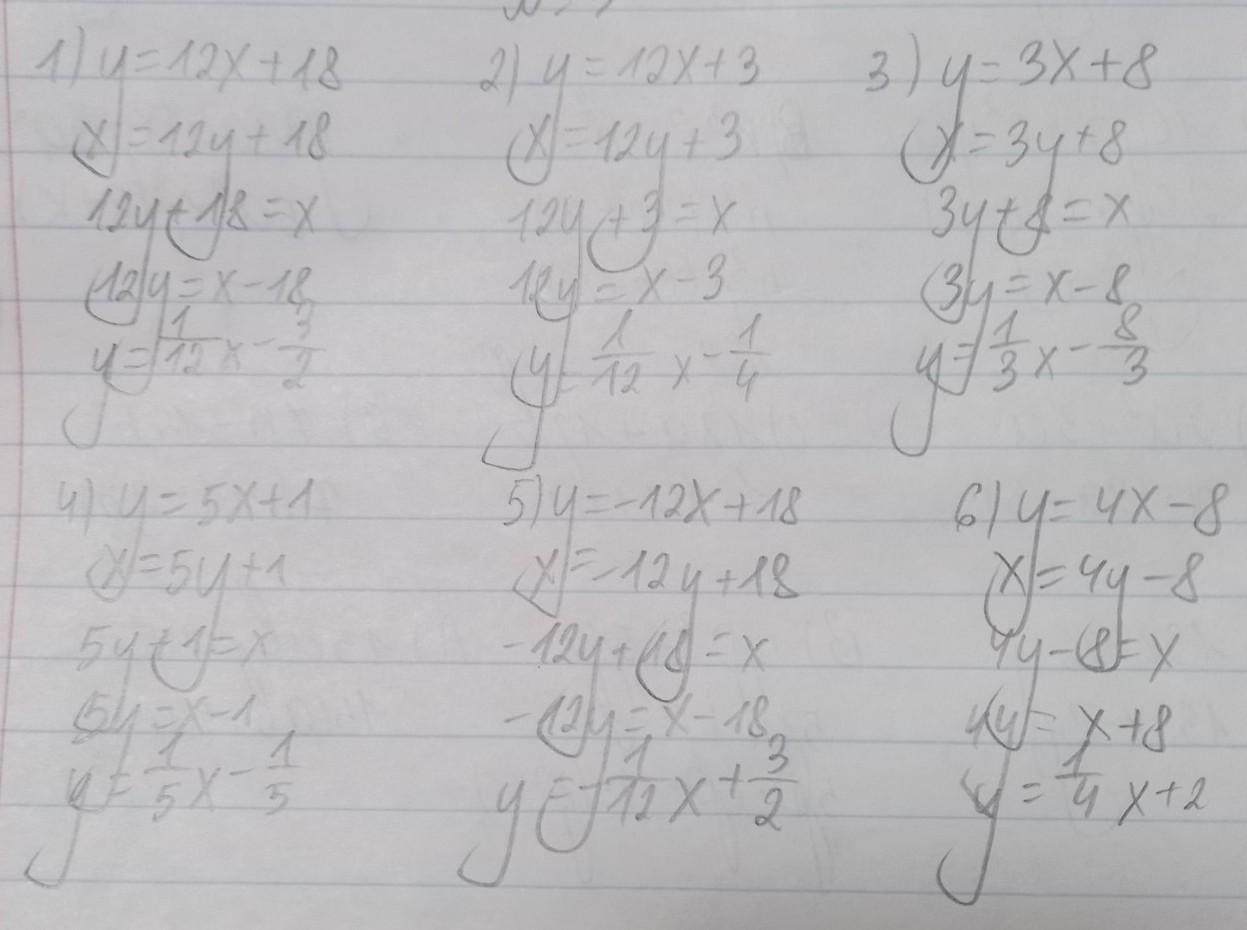 1) y = 12x + 18
x = 12y + 18
12y + 18 = x
12y = x - 18
y = 1/12 x - 3/2
2) y = 12x + 3
x = 12y + 3
12y + 3 = x
12y = x - 3
y = 1/12 x - 1/4
3) y = 3x + 8
x = 3y + 8
3y + 8 = x
3y = x - 8
y = 1/3 x - 8/3
4) y = 5x + 1
x = 5y + 1
5y + 1 = x
5y = x - 1
y = 1/5 x - 1/5
5) y = -12x + 18
x = -12y + 18
-12y + 18 = x
-12y = x - 18
y = -1/12 x + 3/2
6) y = 4x - 8
x = 4y - 8
4y - 8 = x
4y = x + 8
y = 1/4 x + 2